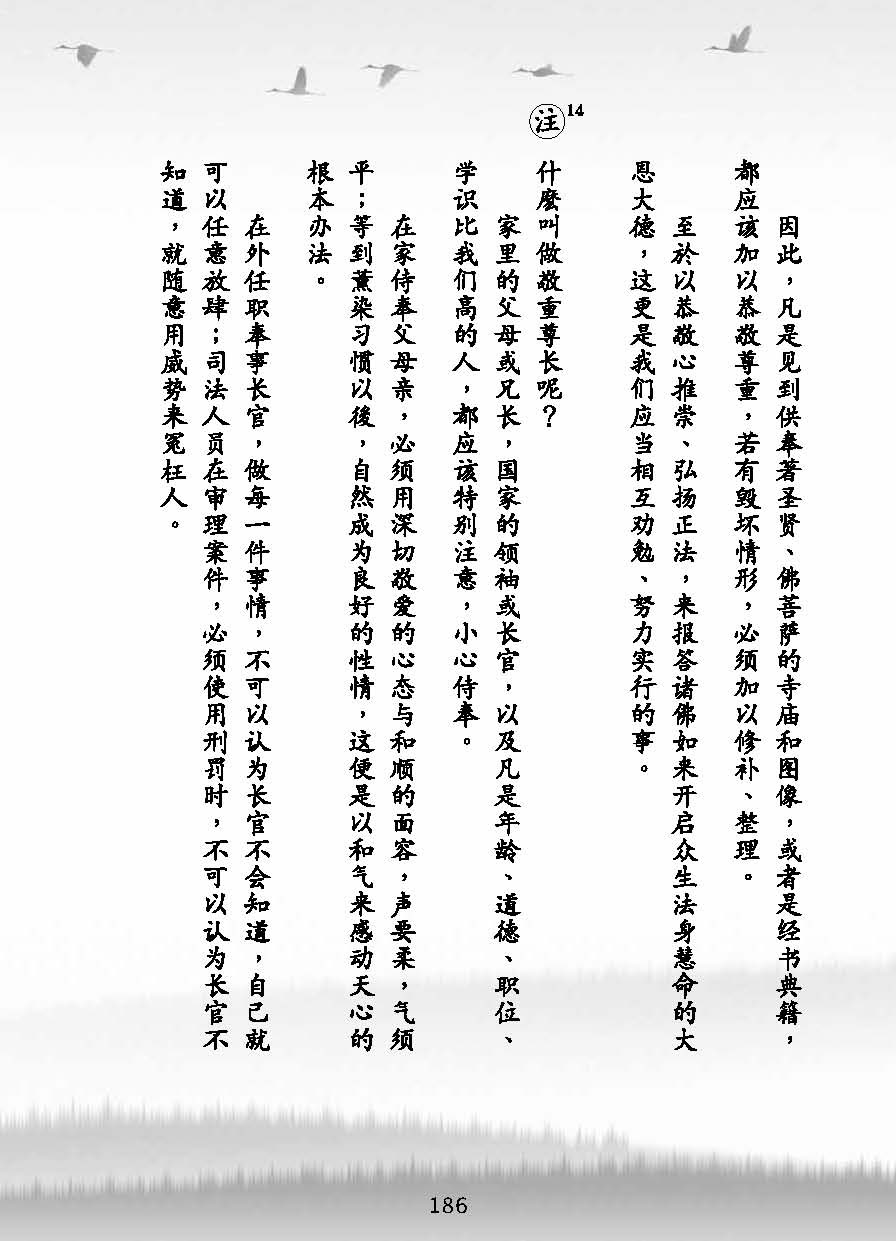 因此，凡是见到供奉著圣贤、佛菩萨的寺庙和图像，或者是经书典籍，
都应该加以恭敬尊重，若有毁坏情形，必须加以修补、整理。
至於以恭敬心推崇、弘扬正法，来报答诸佛如来开启众生法身慧命的大
恩大德，这更是我们应当相互劝勉、努力实行的事。
注14
什麽叫做敬重尊长呢？
家里的父母或兄长，国家的领袖或长官，以及凡是年龄、道德、职位、
学识比我们高的人，都应该特别注意，小心侍奉。
在家侍奉父母亲，必须用深切敬爱的心态与和顺的面容，声要柔，气须
平；等到薰染习惯以後，自然成为良好的性情，这便是以和气来感动天心的
根本办法。
在外任职奉事长官，做每一件事情，不可以认为长官不会知道，自己就
可以任意放肆；司法人员在审理案件，必须使用刑罚时，不可以认为长官不
知道，就随意用威势来冤枉人。
186